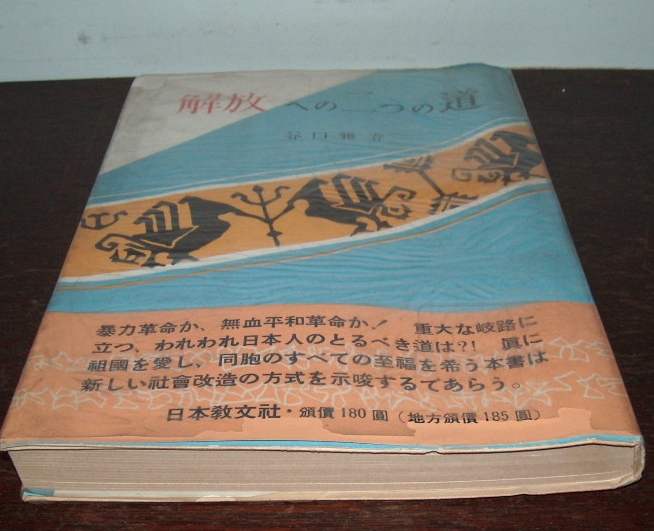 解放への二つの道
谷口雅春
暴力革命か、無血平和革命か！ 重大な岐路に
立つ、われわれ日本人のとるべき道は?! 眞に
祖國を愛し、同胞のすべての至福を希う本書は
新しい社會改造の方式を示唆するてあらう。
日本敎文社・頒價180圓（地方頒價185圓）